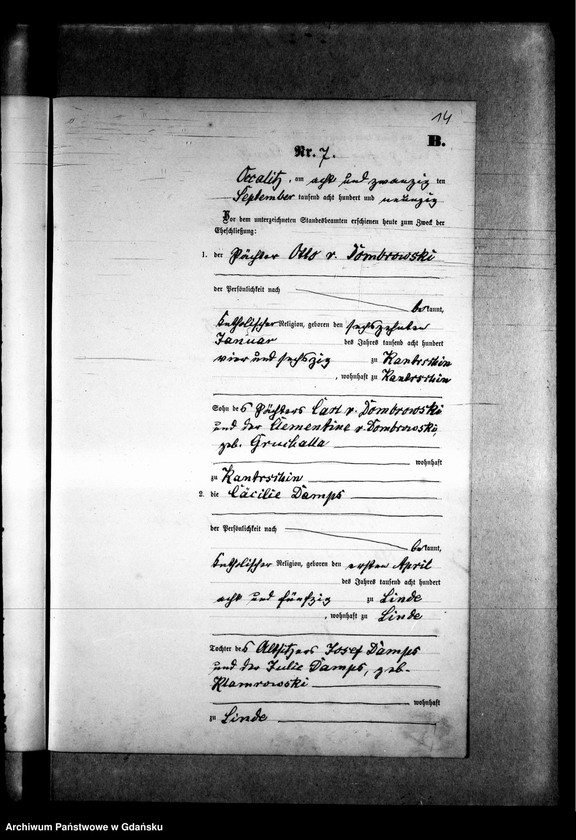 14
B.
Nr. 7.
Occalitz, am acht und zwanzig ten
September tausend acht hundert und neunzig
Vor dem unterzeichneten Standesbeamten erschienen heute zum Zweck der
Eheschließung:
1. der Pächter Otto v. Dombrowski
der Persönlichkeit nach
be kannt,
katholischer Religion, geboren den sechszehnten
Januar des Jahres tausend acht hundert
vier und sechszig zu Kantrschin
, wohnhaft zu Kantrschin
Sohn des Pächters Carl v. Dombrowski
und der Clementine v. Dombrowski,
geb. Gruchalla
wohnhaft
zu Kantrschin
2. die Cäcilie Damps
der Persönlichkeit nach
be kannt,
katholischer Religion, geboren den ersten April
des Jahres tausend acht hundert
acht und fünfzig zu Linde
, wohnhaft zu Linde
Tochter des Altsitzers Josef Damps
und der Julie Damps, geb.
Klamrowski
wohnhaft
zu Linde
Archiwum Państwowe w Gdańsku